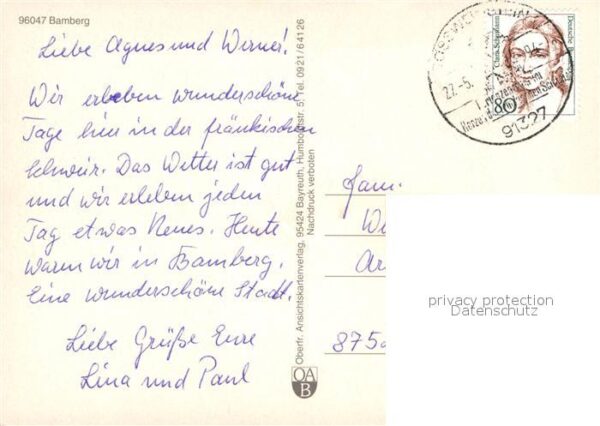 96047 Bamberg
Liebe Agnes und Werner!
Wir erleben wunderschöne
Tage hier in der fränkischen
Schweiz. Das Wetter ist gut
und wir erleben jeden
Tag etwas Neues. Heute
waren wir in Bamberg.
Eine wunderschöne Stadt.
Liebe Grüße Eure
Lina und Paul
Oberfr. Ansichtskartenverlag, 95424 Bayreuth, Humboldtstr. 5, Tel. 0921/64126
Nachdruck verboten
OA
B
Fam.
We
Ar
875
privacy protection
Datenschutz
Clara Schumann
Deutsche
80
27.-5.
91327